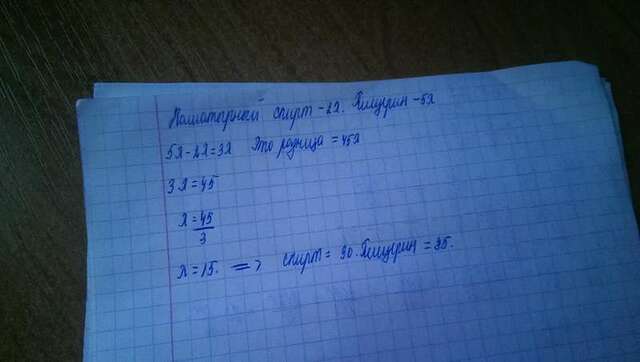 Нашатырный спирт - 2x. Глицерин - 5x
5x - 2x = 3x Это разница = 45г
3x = 45
x = 45/3
x = 15. => спирт = 30. Глицерин = 75.